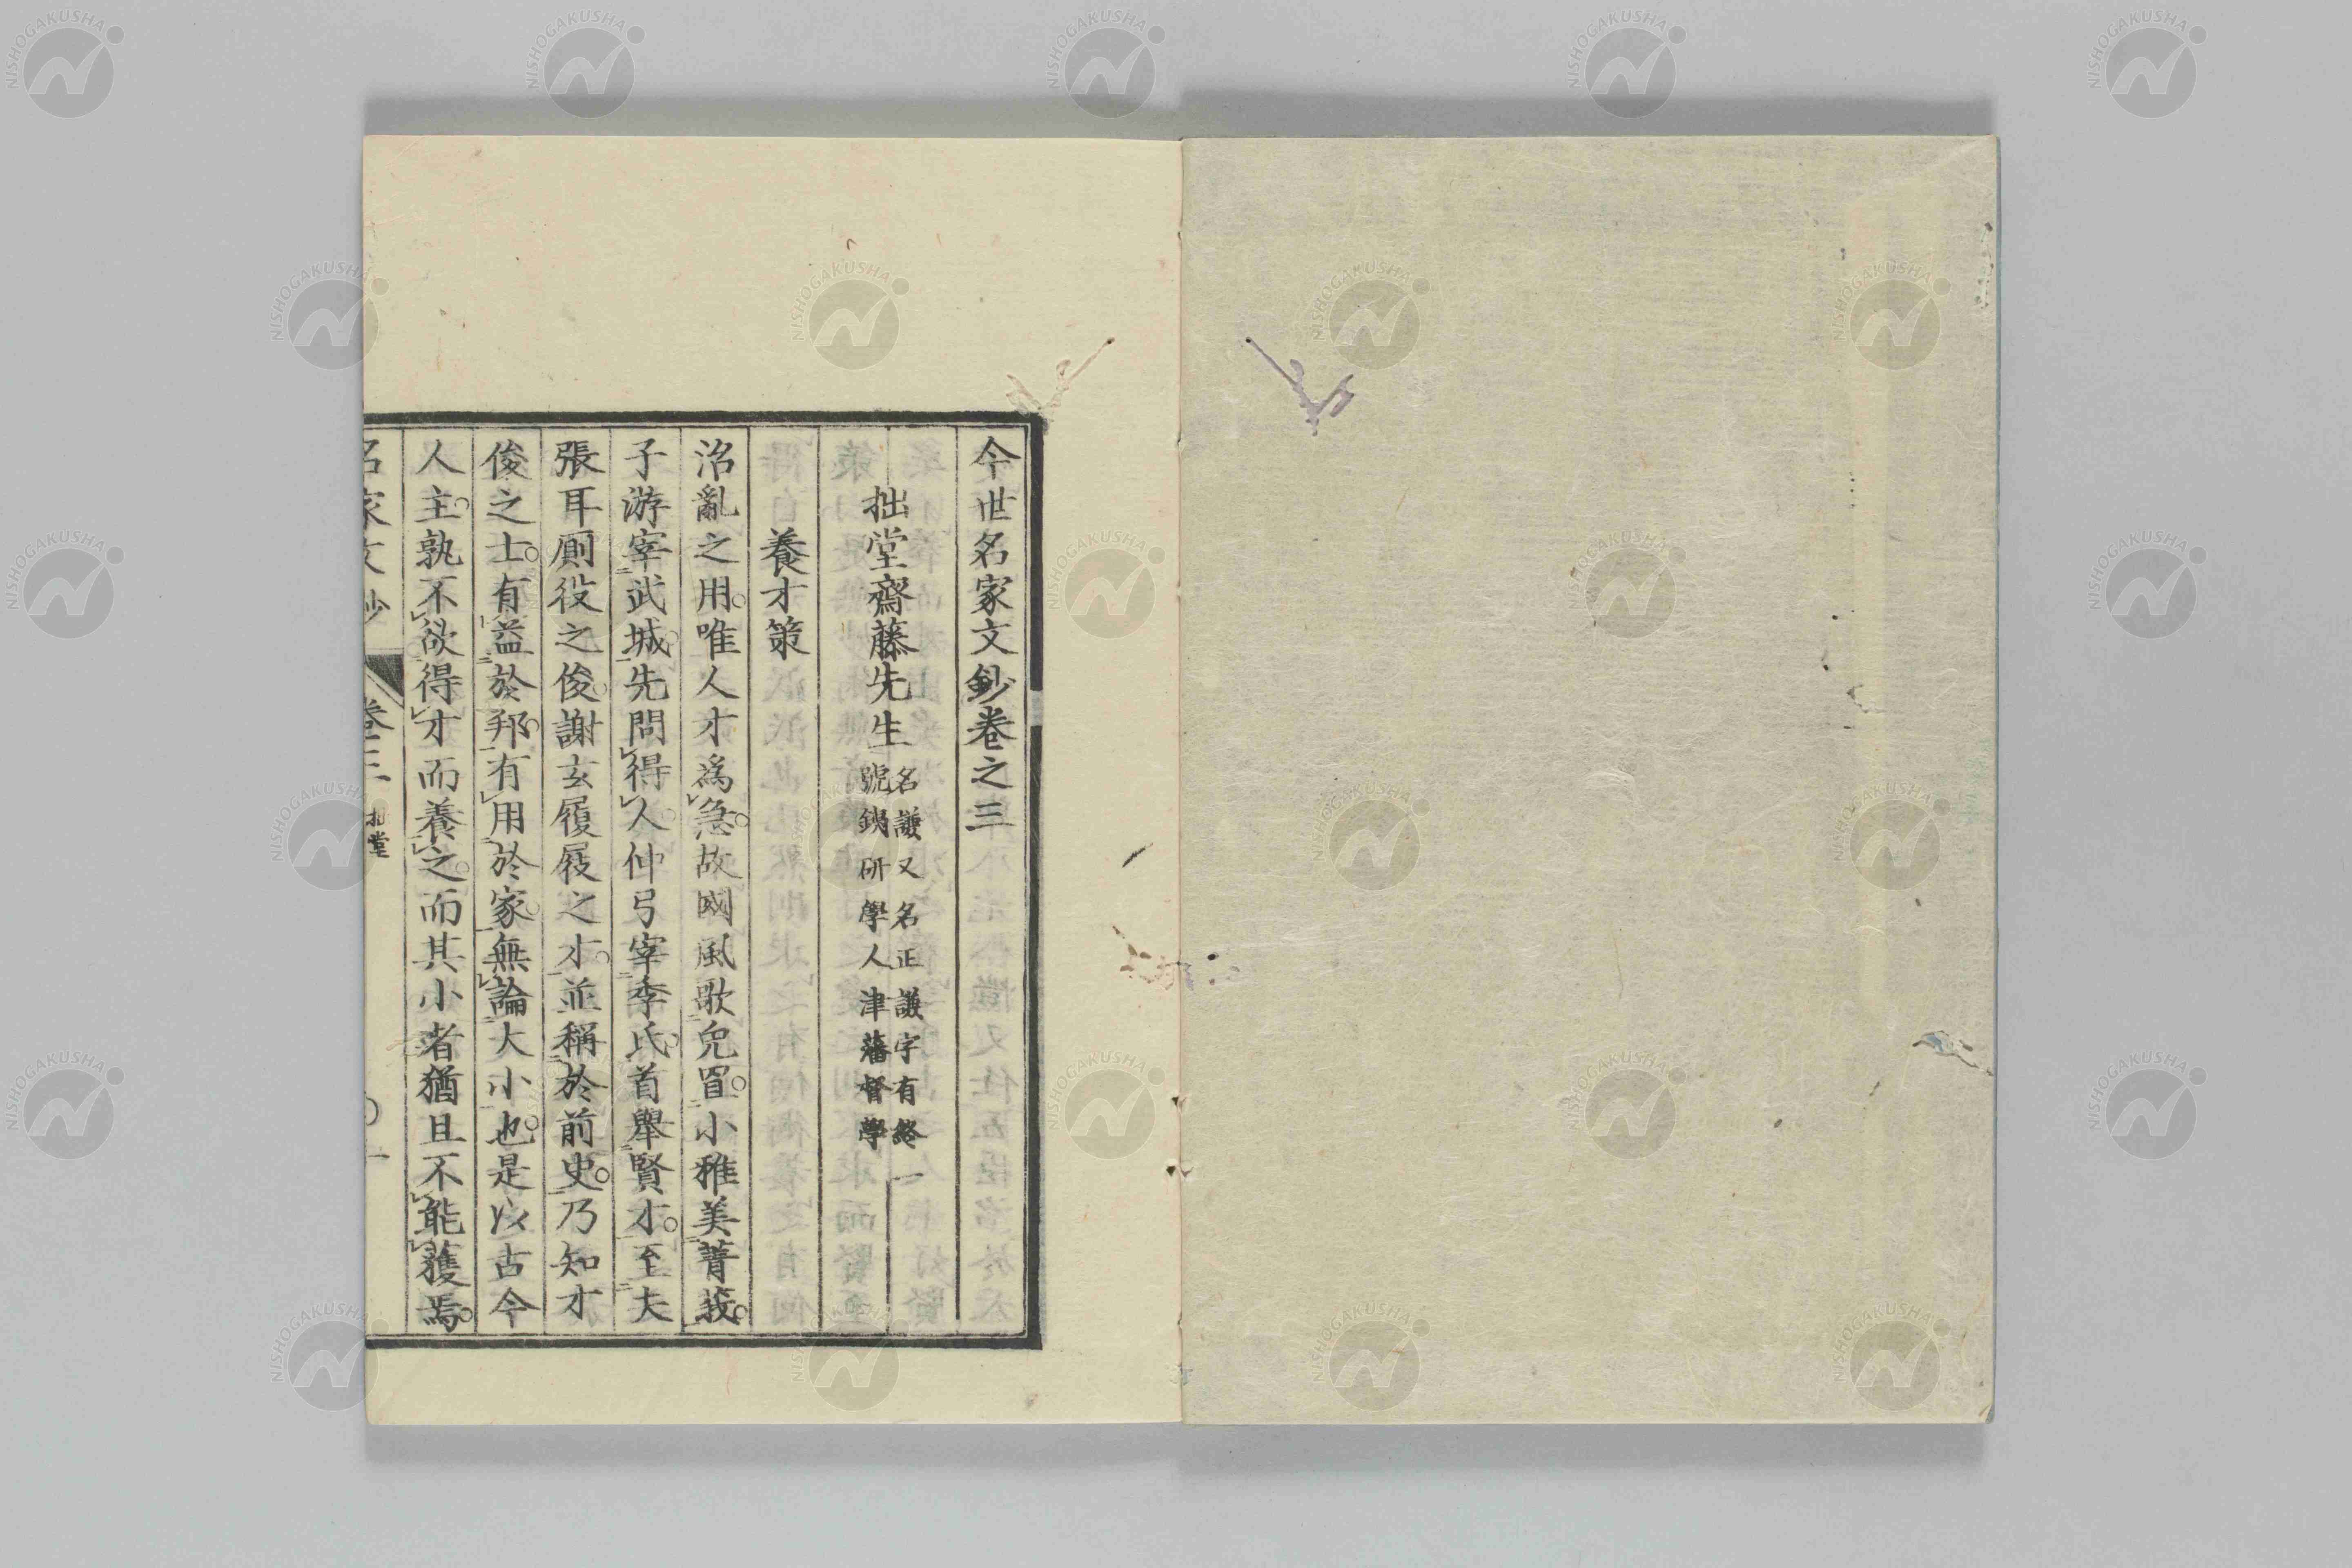 今世名家文鈔卷之三
拙堂齋藤先生
名謙又名正謙字有終一
號鐵研學人津藩督學
養才策
治亂之用唯人才爲急故國風歌兔罝小雅美菁莪
子游宰武城先問得人仲弓宰季氏首舉賢才至夫
張耳厠役之俊謝玄履屐之才並稱於前史乃知才
俊之士有益於邦有用於家無論大小也是以古今
人主孰不欲得才而養之而其小者猶且不能獲焉
名家文鈔 卷三 拙堂 ○一
NISHOGAKUSHA